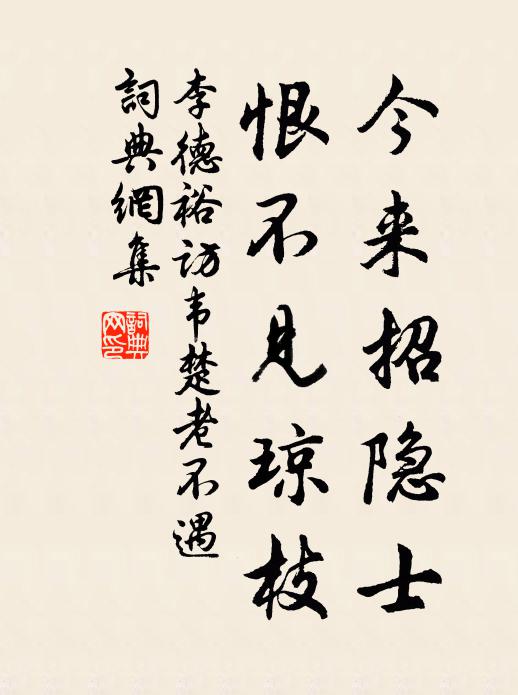 今来招隐士
恨不见琼枝
李德裕访韦楚老不遇
詞典網集
詞典
网印